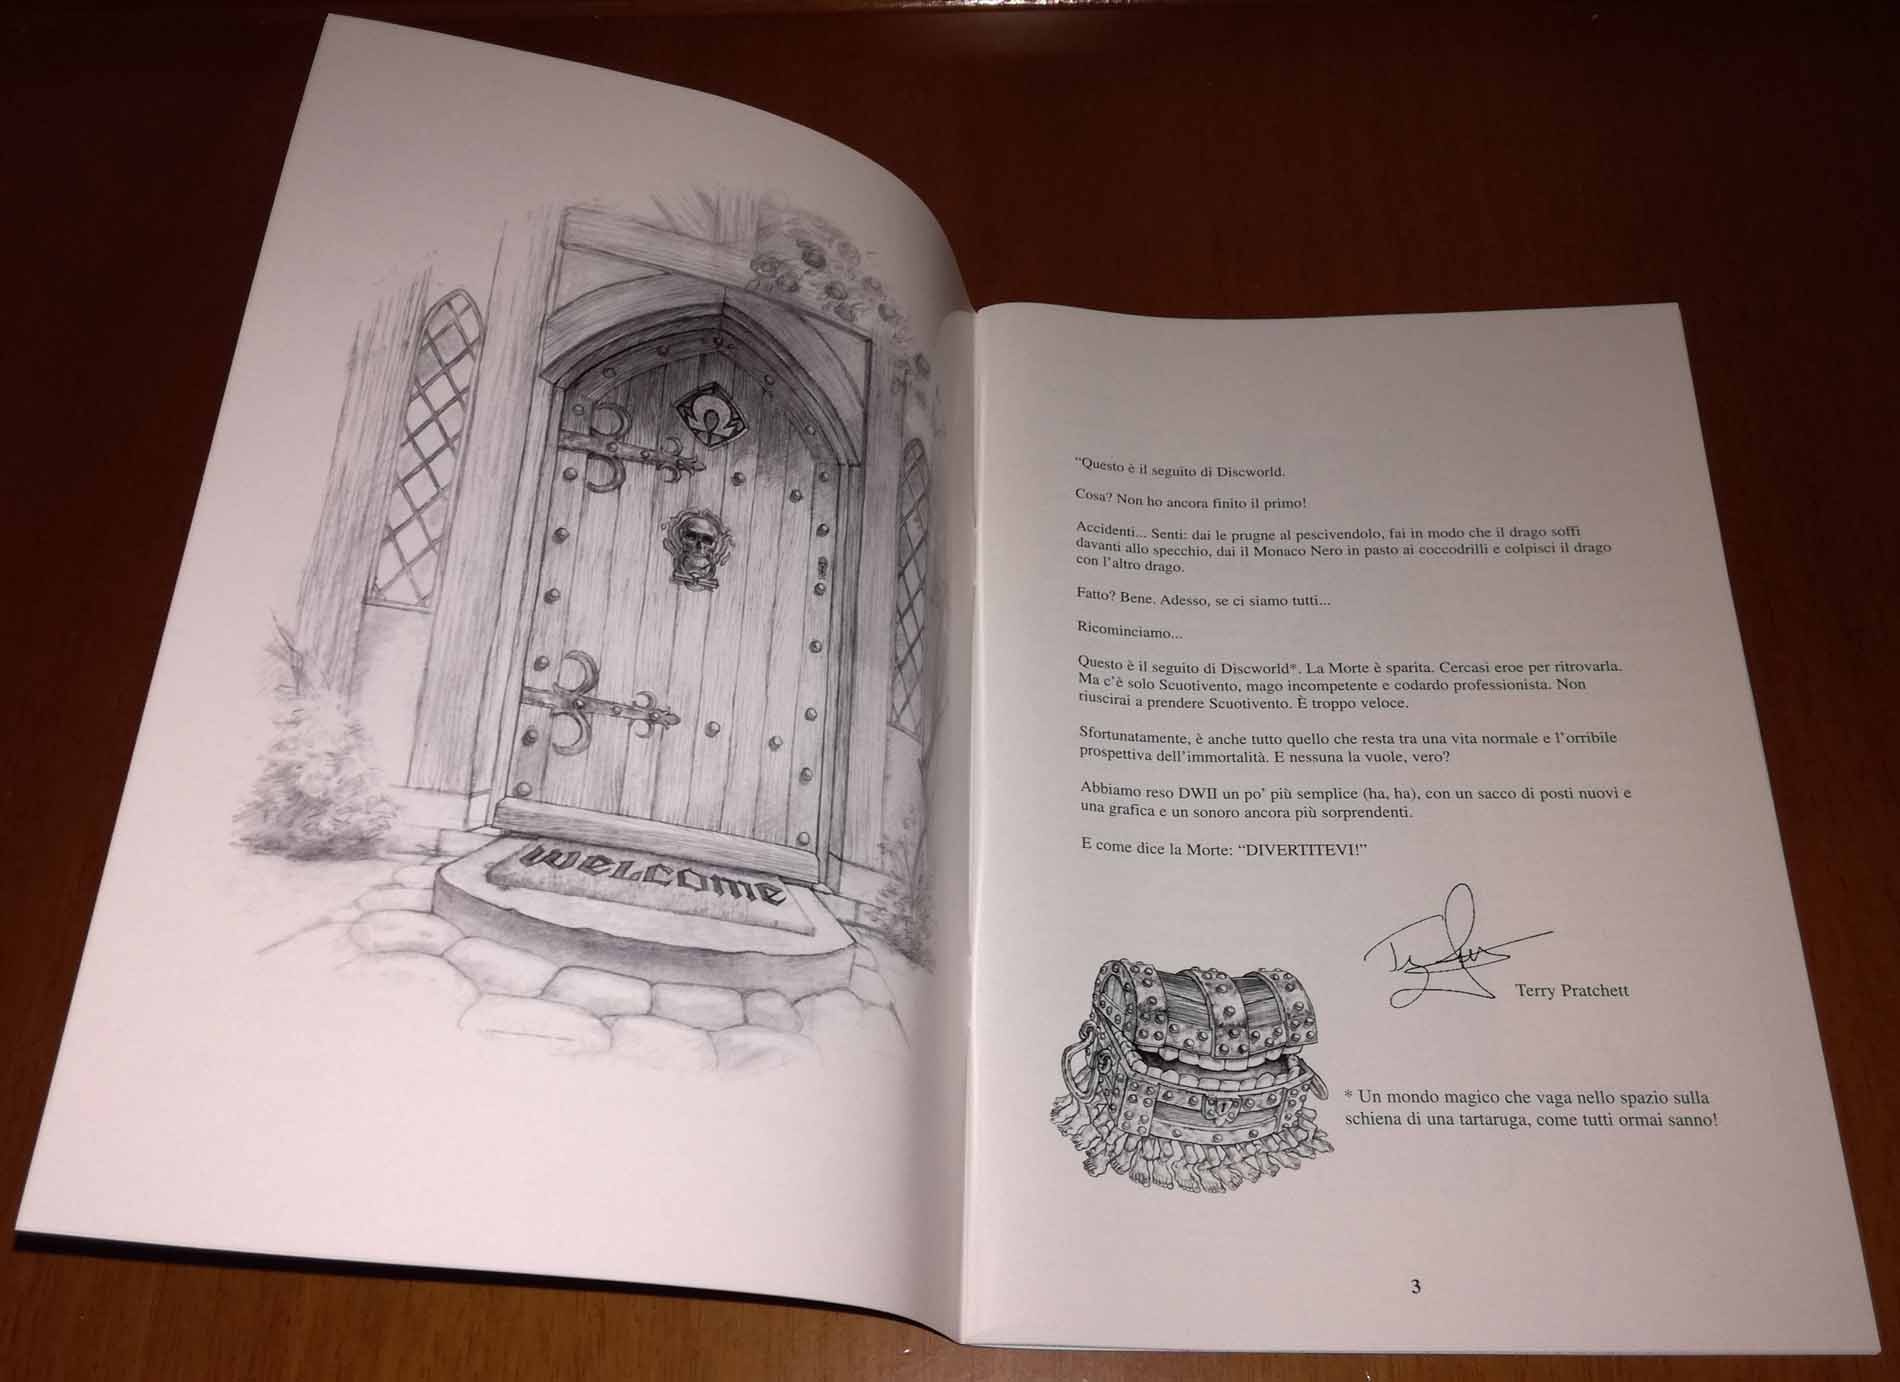 welcome
“Questo è il seguito di Discworld.
Cosa? Non ho ancora finito il primo!
Accidenti... Senti: dai le prugne al pescivendolo, fai in modo che il drago soffi
davanti allo specchio, dai il Monaco Nero in pasto ai coccodrilli e colpisci il drago
con l’altro drago.
Fatto? Bene. Adesso, se ci siamo tutti...
Ricominciamo...
Questo è il seguito di Discworld*. La Morte è sparita. Cercasi eroe per ritrovarla.
Ma c’è solo Scuotivento, mago incompetente e codardo professionista. Non
riuscirai a prendere Scuotivento. È troppo veloce.
Sfortunatamente, è anche tutto quello che resta tra una vita normale e l’orribile
prospettiva dell’immortalità. E nessuna la vuole, vero?
Abbiamo reso DWII un po’ più semplice (ha, ha), con un sacco di posti nuovi e
una grafica e un sonoro ancora più sorprendenti.
E come dice la Morte: “DIVERTITEVI!”
Terry Pratchett
* Un mondo magico che vaga nello spazio sulla
schiena di una tartaruga, come tutti ormai sanno!
3